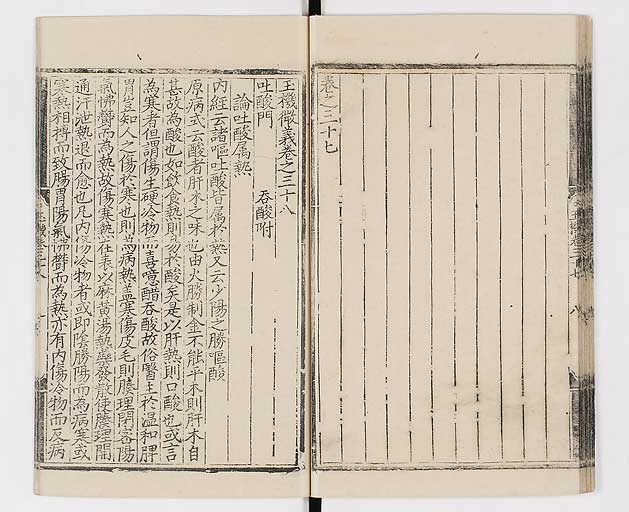 卷之三十七
玉機微義卷之三十八
吐酸門 吞酸附
論吐酸屬熱
內經云諸嘔吐酸皆屬於熱又云少陽之勝嘔酸
原病式云酸者肝木之味也由火勝制金不能平木則肝木自
甚故為酸也如飲食熱則易於酸矣是以肝熱則口酸也或言
為寒者但謂傷生硬冷物而喜噫醋吞酸故俗醫主於溫和脾
胃豈如人之傷於寒也則為病熱盖寒傷皮毛則腠理閉密陽
氣怫鬱而為熱故傷寒熱在表以麻黃湯熱藥發散使腠理開
通汗泄熱退而愈也凡內傷冷物者或即陰勝陽而為病寒或
寒熱相搏而致腸胃陽氣怫鬱而為熱亦有內傷冷物而反病